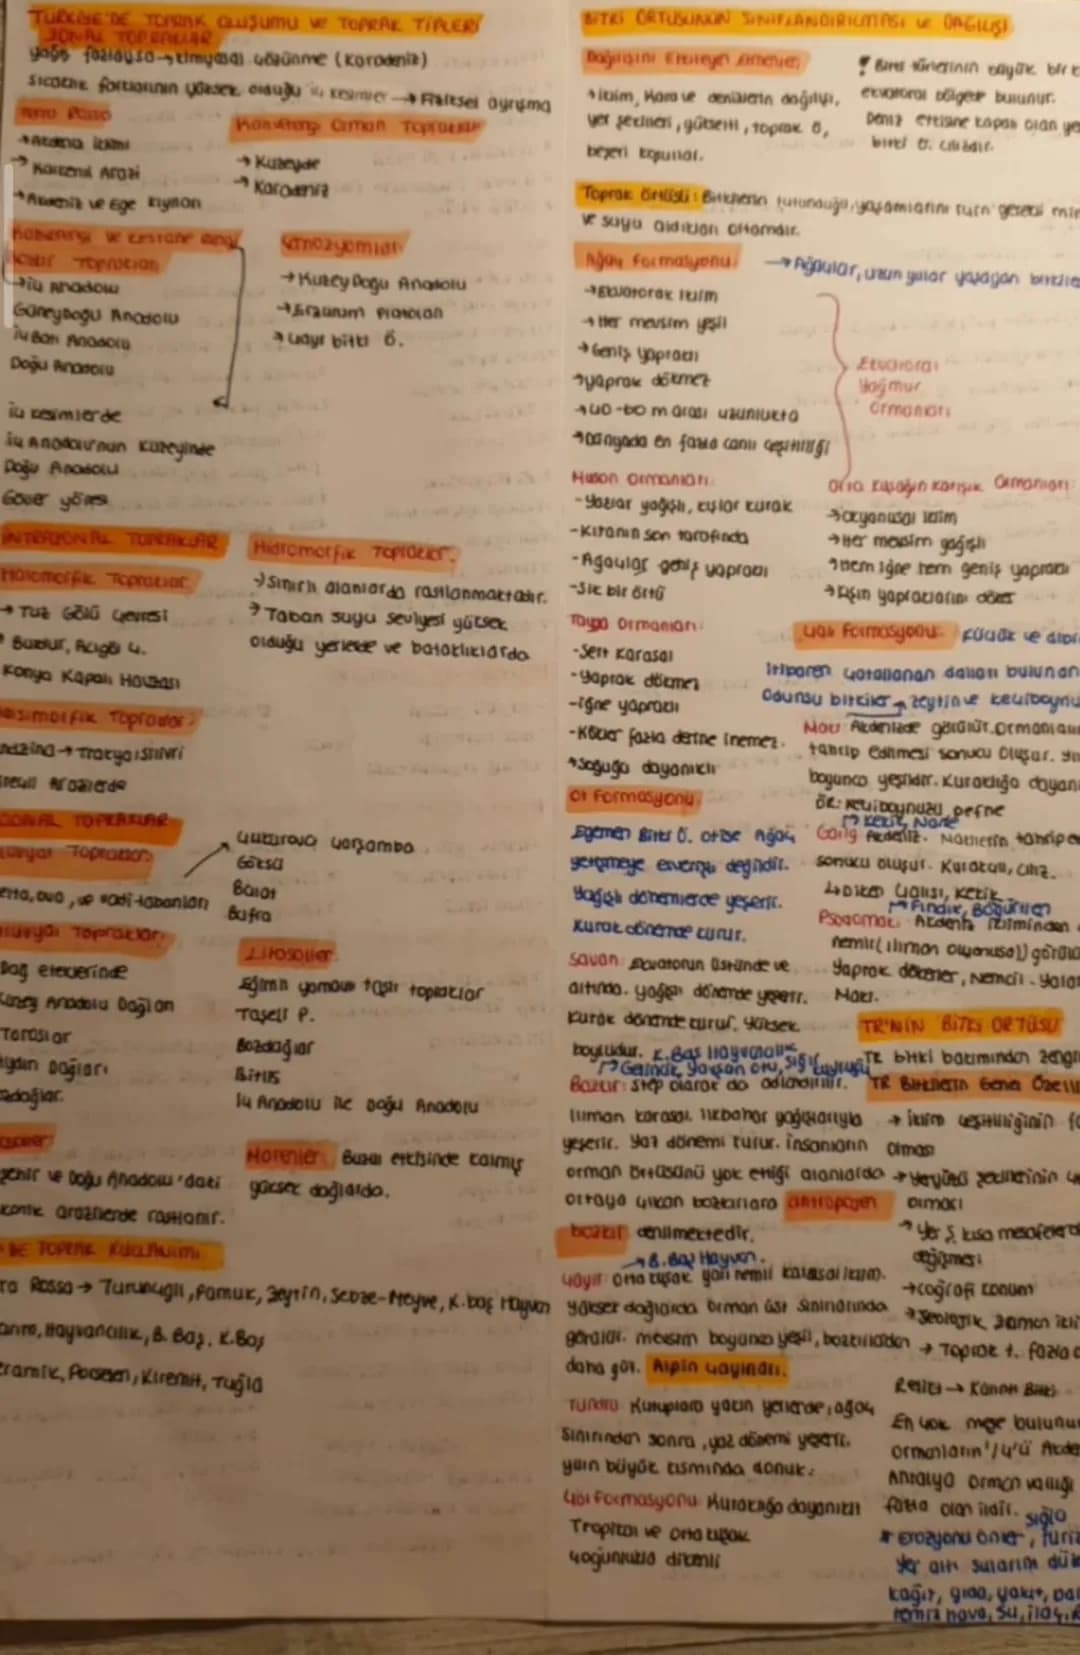 TÜRKİYE'DE TOPRAK OLUŞUMU ve TOPRAK TİPLERİ
ZONAL TOPRAKLAR
yağış fazlaysa → kimyasal çözünme (Karadeniz)
sıcaklık farklarının yüksek olduğu iç kesimler → Fiziksel ayrışma
Terra Rossa
→ Akdeniz iklimi
→ Karstik Arazi
→ Akdeniz ve Ege kıyıları
Kahverengi Orman Toprakları
→ Kuzeyde
→ Karadeniz
Kahverengi ve kestane rengi
Bozkır Toprakları
→ İç Anadolu
Güneydoğu Anadolu
İç Batı Anadolu
Doğu Anadolu
Çernozyomlar
→ Kuzey Doğu Anadolu
→ Erzurum Platoları
→ çayır bitki ö.
iç kesimlerde
İç Anadolu'nun kuzeyinde
Doğu Anadolu
yöresi
İNTRAZONAL TOPRAKLAR
Halomorfik Topraklar
→ Tuz Gölü Çevresi
Burdur, Acıgöl Ç.
Konya Kapalı Havzası
Hidromorfik Topraklar
→ Sınırlı alanlarda rastlanmaktadır.
→ Taban suyu seviyesi yüksek
olduğu yerlerde ve bataklıklarda
Topraklar
→ Trakya
Arazilerde
ZONAL TOPRAKLAR
Topraklar
ova, ve vadi tabanları
Çukurova Çarşamba
Göksu
Balat
Bafra
Topraklar
Dağ eteklerinde
Kuzey Anadolu Dağları
Toroslar
Aydın Dağları
Litosoller
Eğimli yamaç taşlı topraklar
Taşeli P.
Bozdağlar
Bitlis
İç Anadolu ile Doğu Anadolu
ve Doğu Anadolu'daki
arazilerde rastlanır.
Morenler: Buzul etkisinde kalmış
yüksek dağlarda.
DE TOPRAK KULLANIMI
Rossa → Turunçgil, Pamuk, Zeytin, Sebze-Meyve, K. baş Hayvan
Hayvancılık, B. Baş, K. Baş
Porselen, Kiremit, Tuğla
BİTKİ ÖRTÜSÜNÜN SINIFLANDIRILMASI ve DAĞILIŞI
Dağılışını Etkileyen Etmenler
→ iklim, Kara ve denizlerin dağılışı,
yer şekilleri, yükselti, toprak ö,
beşeri koşullar.
! Bitki türlerinin büyük bir k
ekvatoral bölgede bulunur.
Deniz etkisine kapalı olan ye
bitki ö. cılızdır.
Toprak Örtüsü: Bitkilerin tutunduğu, yaşamlarını için gerekli min
ve suyu aldıkları ortamdır.
Ağaç Formasyonu → Ağaçlar, uzun yıllar yaşayan bitkile
→ Ekvatoral iklim
→ Her mevsim yeşil
→ Geniş yapraklı
→ yaprak dökmez
→ 40-60 m arası uzunlukta
→ Dünyada en fazla canlı çeşitliliği
Ekvatoral
Yağmur
Ormanları
Muson Ormanları:
- Yazlar yağışlı, kışlar kurak
- Kıtanın son tarafında
- Ağaçlar geniş yapraklı
- Sık bir örtü
Orta Kuşağın Karışık Ormanları
→ Okyanusal iklim
→ Her mevsim yağışlı
→ Hem iğne hem geniş yapraklı
→ Kışın yapraklarını döker
Tayga Ormanları:
- Sert Karasal
- Yaprak dökmez
- iğne yapraklı
- Kökler fazla derine inemez.
→ Soğuğa dayanıklı
Çalı Formasyonu: Küçük ve dipt
itibaren çatallanan dalları bulunan
odunsu bitkiler → zeytin ve keçiboynu
Maki: Akdenizde görülür. Ormanların
tahrip edilmesi sonucu oluşur.
boyunca yeşildir. Kuraklığa dayanı
Ör: keçiboynuzu, defne
Garig: Akdeniz. Makilerin tahrip e
sonucu oluşur. Kurakçıl, cılız.
→ Diken Çalısı, Kekik
→ Fındık, Böğürtlen
Psödomaki: Akdeniz ikliminden
nemli (ılıman okyanusal) görülü
Yaprak dökerler, Nemcil - Yalan
Maki.
Ot Formasyonu:
Egemen Bitki Ö. otise Ağaç
yetişmeye elverişli değildir.
Yağışlı dönemlerde yeşerir.
Kurak dönemde kurur.
Savan: Ekvatorun üstünde ve
altında. yağışlı dönemde yeşerir.
kurak dönemde kurur. Yüksek
boyludur. K. Baş Hayvancılık
→ Gelincik, Yavşan otu, Sığır kuyruğu
Bozkır: step olarak da adlandırılır.
ılıman karasal. ilkbahar yağışlarıyla
yeşerir. Yaz dönemi kurur. insanların
orman örtüsünü yok ettiği alanlarda
ortaya çıkan bozkırlara antropojen
bozkır denilmektedir.
→ B. Baş Hayvan.
Çayır: Orta kuşak yarı nemli karasal iklim.
yüksek dağlarda orman üst sınırlarında
görülür. mevsim boyunca yeşil, bozkırlardan
daha gür. Alpin Çayırları.
Tundra: Kutuplara yakın yerlerde, ağaç
sınırından sonra, yaz dönemi yeşerir.
yılın büyük kısmında donuk.
Çöl Formasyonu: Kuraklığa dayanıklı
Tropikal ve orta kuşak
çoğunlukla dikenli
TR'NİN BİTKİ ÖRTÜSÜ
TR bitki bakımından zengin
TR Bitkilerin Genel Özelli
→ iklim çeşitliliğinin fa
olması
→ Yeryüzü şekillerinin çe
olması
→ Yer Ş. kısa mesafelerd
değişmesi
→ Coğrafi Konum
→ Jeolojik zaman
→ Toprak t. fazla o
Relikt → Kalıntı Bitki
En çok meşe bulunur
ormanların 1/4'ü Akde
Antalya orman varlığı
fazla olan ildir. sığla
* Erozyonu önler, turiz
Yer altı sularını
kağıt, gıda, yakıt,
temiz hava, su, ilaç,